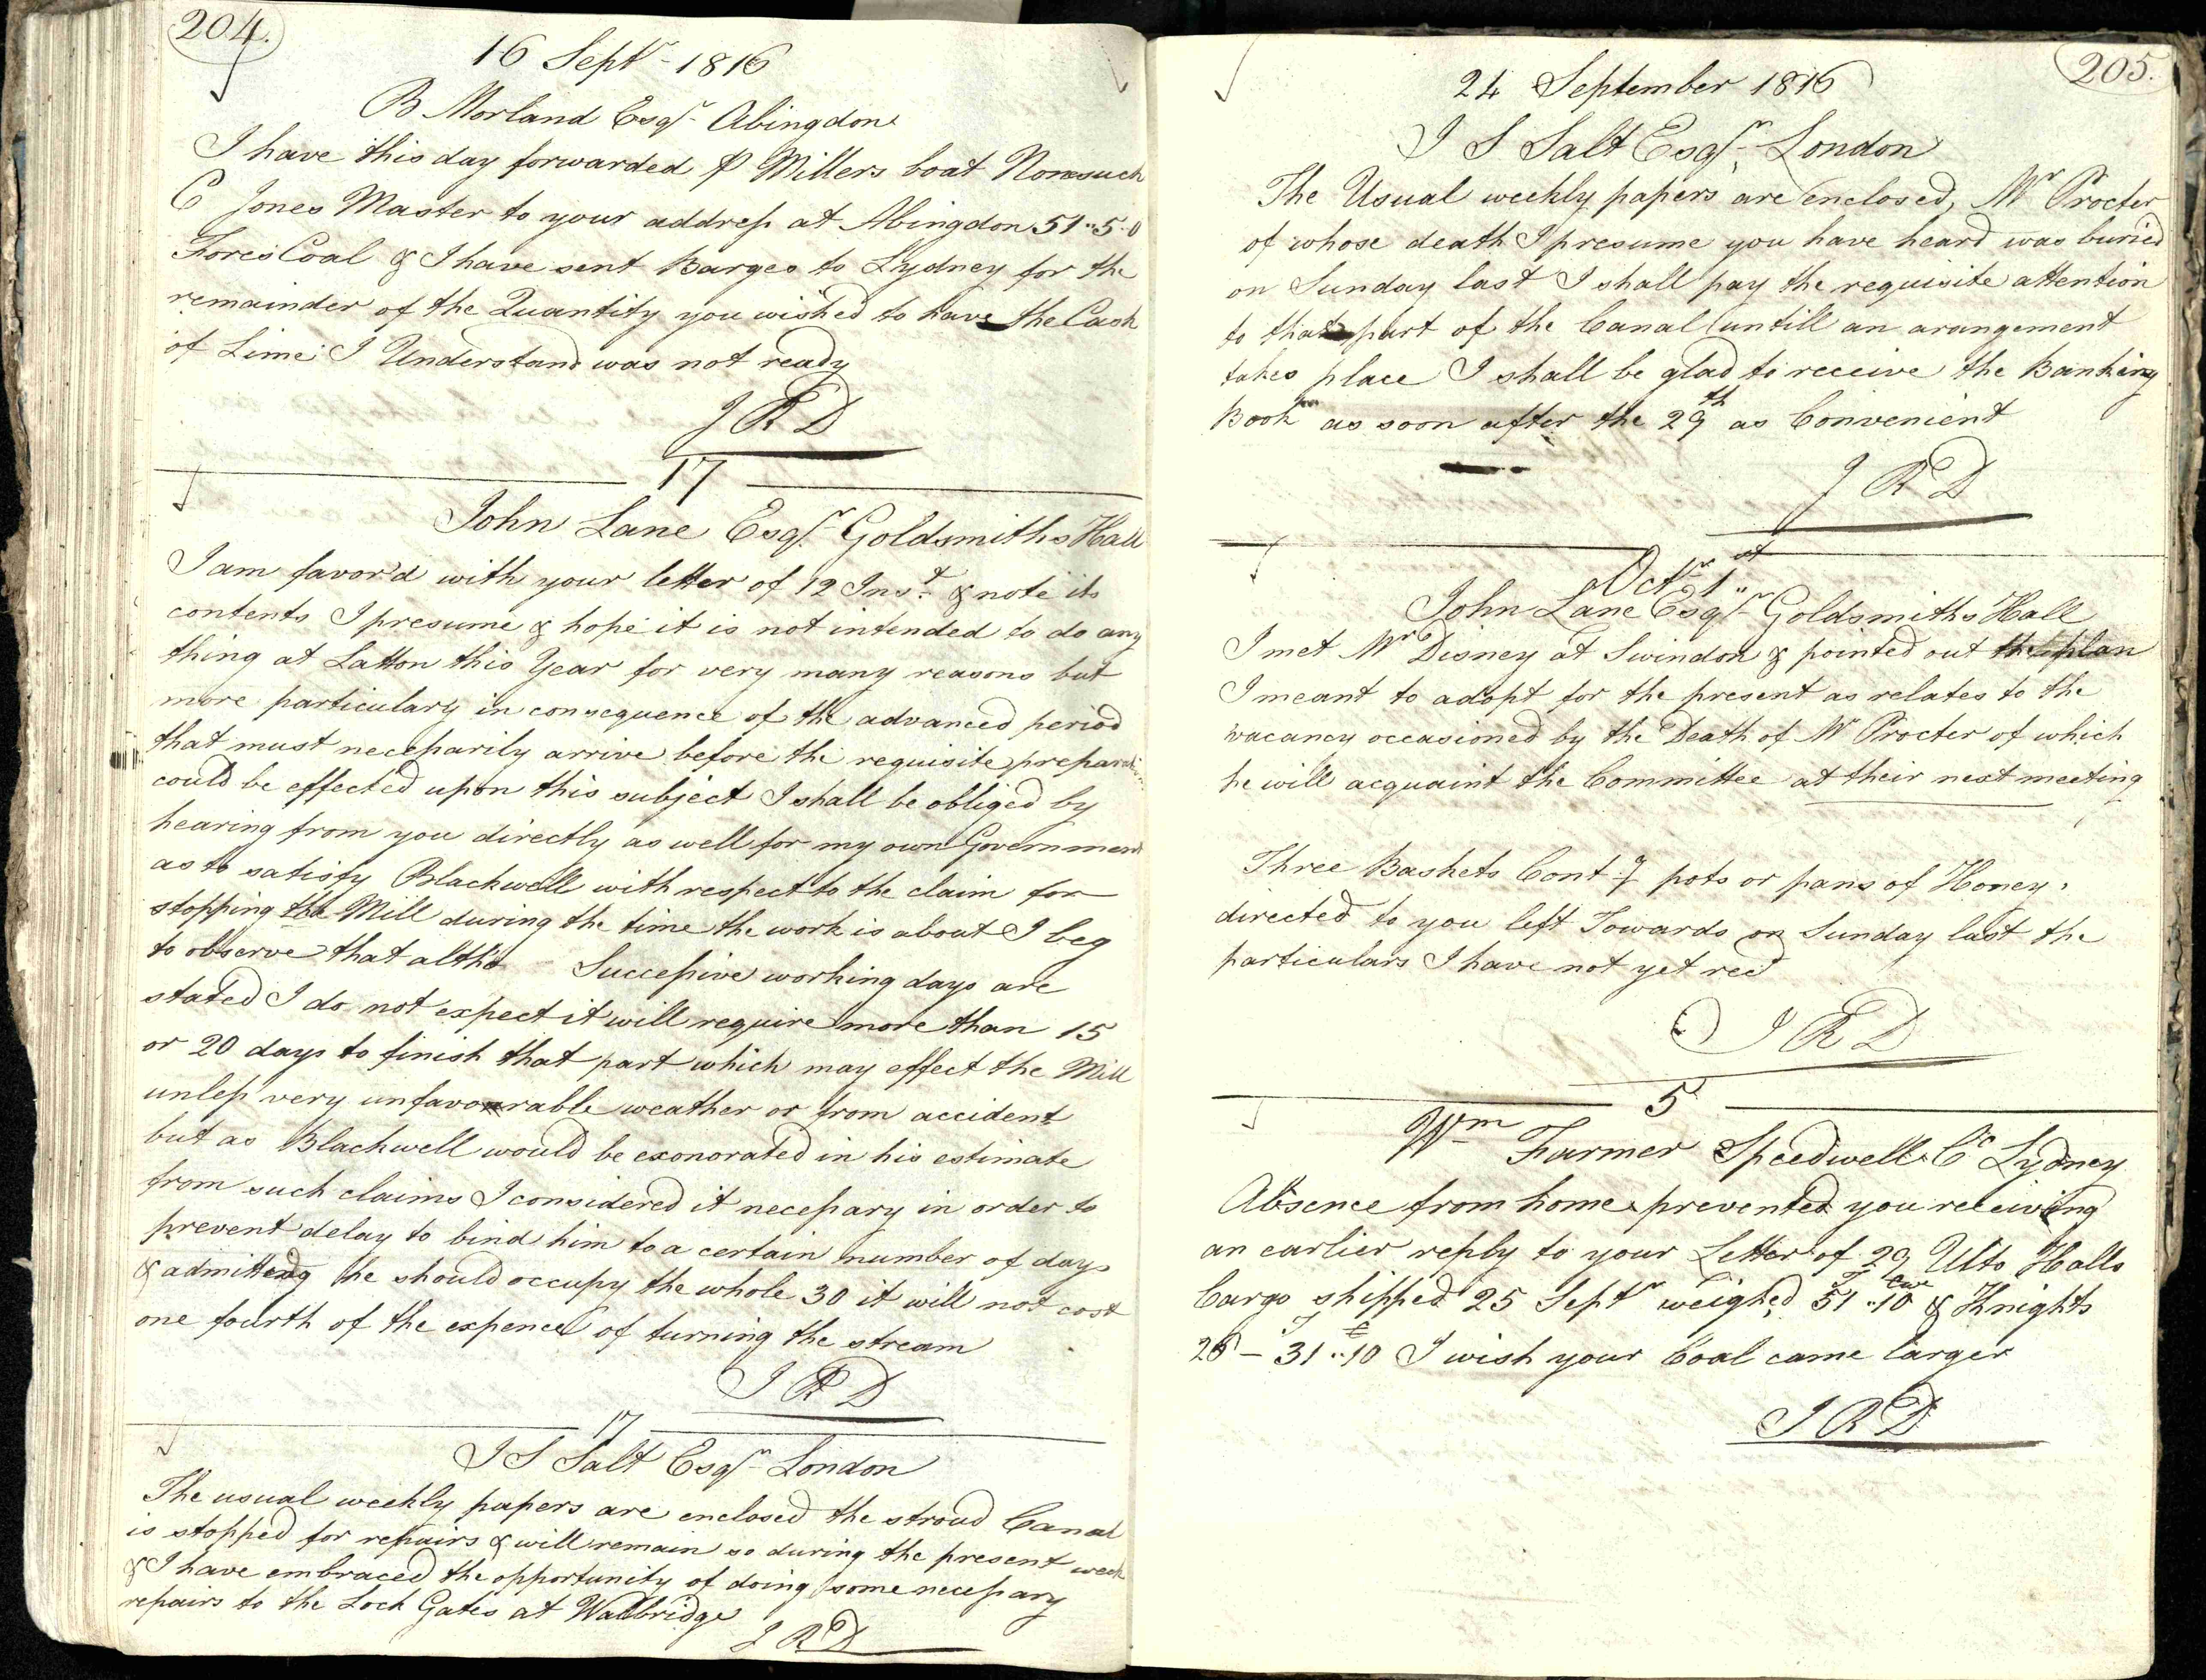 204.
16 Septr - 1816
B Morland Esqr - Abingdon
I have this day forwarded ⅌ Millers boat Nonsuch
C Jones Master to your address at Abingdon 51..5.0
Forest Coal & I have sent Barges to Lydney for the
remainder of the Quantity you wished to have the Cask
of Lime I Understand was not ready
J R D
17
John Lane Esqr Goldsmiths Hall
I am favor'd with your letter of 12 Inst. & note its
contents I presume & hope it is not intended to do any
thing at Latton this Year for very many reasons but
more particulary in consequence of the advanced period
that must necessarily arrive before the requisite preparation
could be effected upon this subject I shall be obliged by
hearing from you directly as well for my own Government
as to satisfy Blackwell with respect to the claim for
stopping the Mill during the time the work is about I beg
to observe that altho Successive working days are
stated I do not expect it will require more than 15
or 20 days to finish that part which may effect the Mill
unless very unfavourable weather or from accident
but as Blackwell would be exonorated in his estimate
from such claims I considered it necessary in order to
prevent delay to bind him to a certain number of days
& admitting he should occupy the whole 30 it will not cost
one fourth of the expence of turning the stream
J R D
17
J S Salt Esqr - London
The usual weekly papers are enclosed the stroud Canal
is stopped for repairs & will remain so during the present week
& I have embraced the opportunity of doing some necessary
repairs to the Lock Gates at Wallbridge
J R D
205.
24 September 1816
J S Salt Esqr - London
The Usual weekly papers are enclosed, Mr Procter
of whose death I presume you have heard was buried
on Sunday last I shall pay the requisite attention
to that part of the Canal untill an arangement
takes place I shall be glad to receive the Banking
Book as soon after the 29th as Convenient
J R D
Octr 1st
John Lane Esqr - Goldsmiths Hall
I met Mr Disney at Swindon & pointed out the plan
I meant to adopt for the present as relates to the
vacancy occasioned by the Death of Mr Procter of which
he will acquaint the Committee at their next meeting
Three Baskets Cont 7 pots or pans of Honey
directed to you left Towards on Sunday last the
particulars I have not yet recd
J R D
5
Wm Farmer Speedwell Co Lydney
Absence from home prevented you receiving
an earlier reply to your Letter of 29 Ulto Halls
Cargo shipped 25 Septr weighed 51T..10cw & Knights
25 - 31T..10c I wish your Coal came larger
J R D